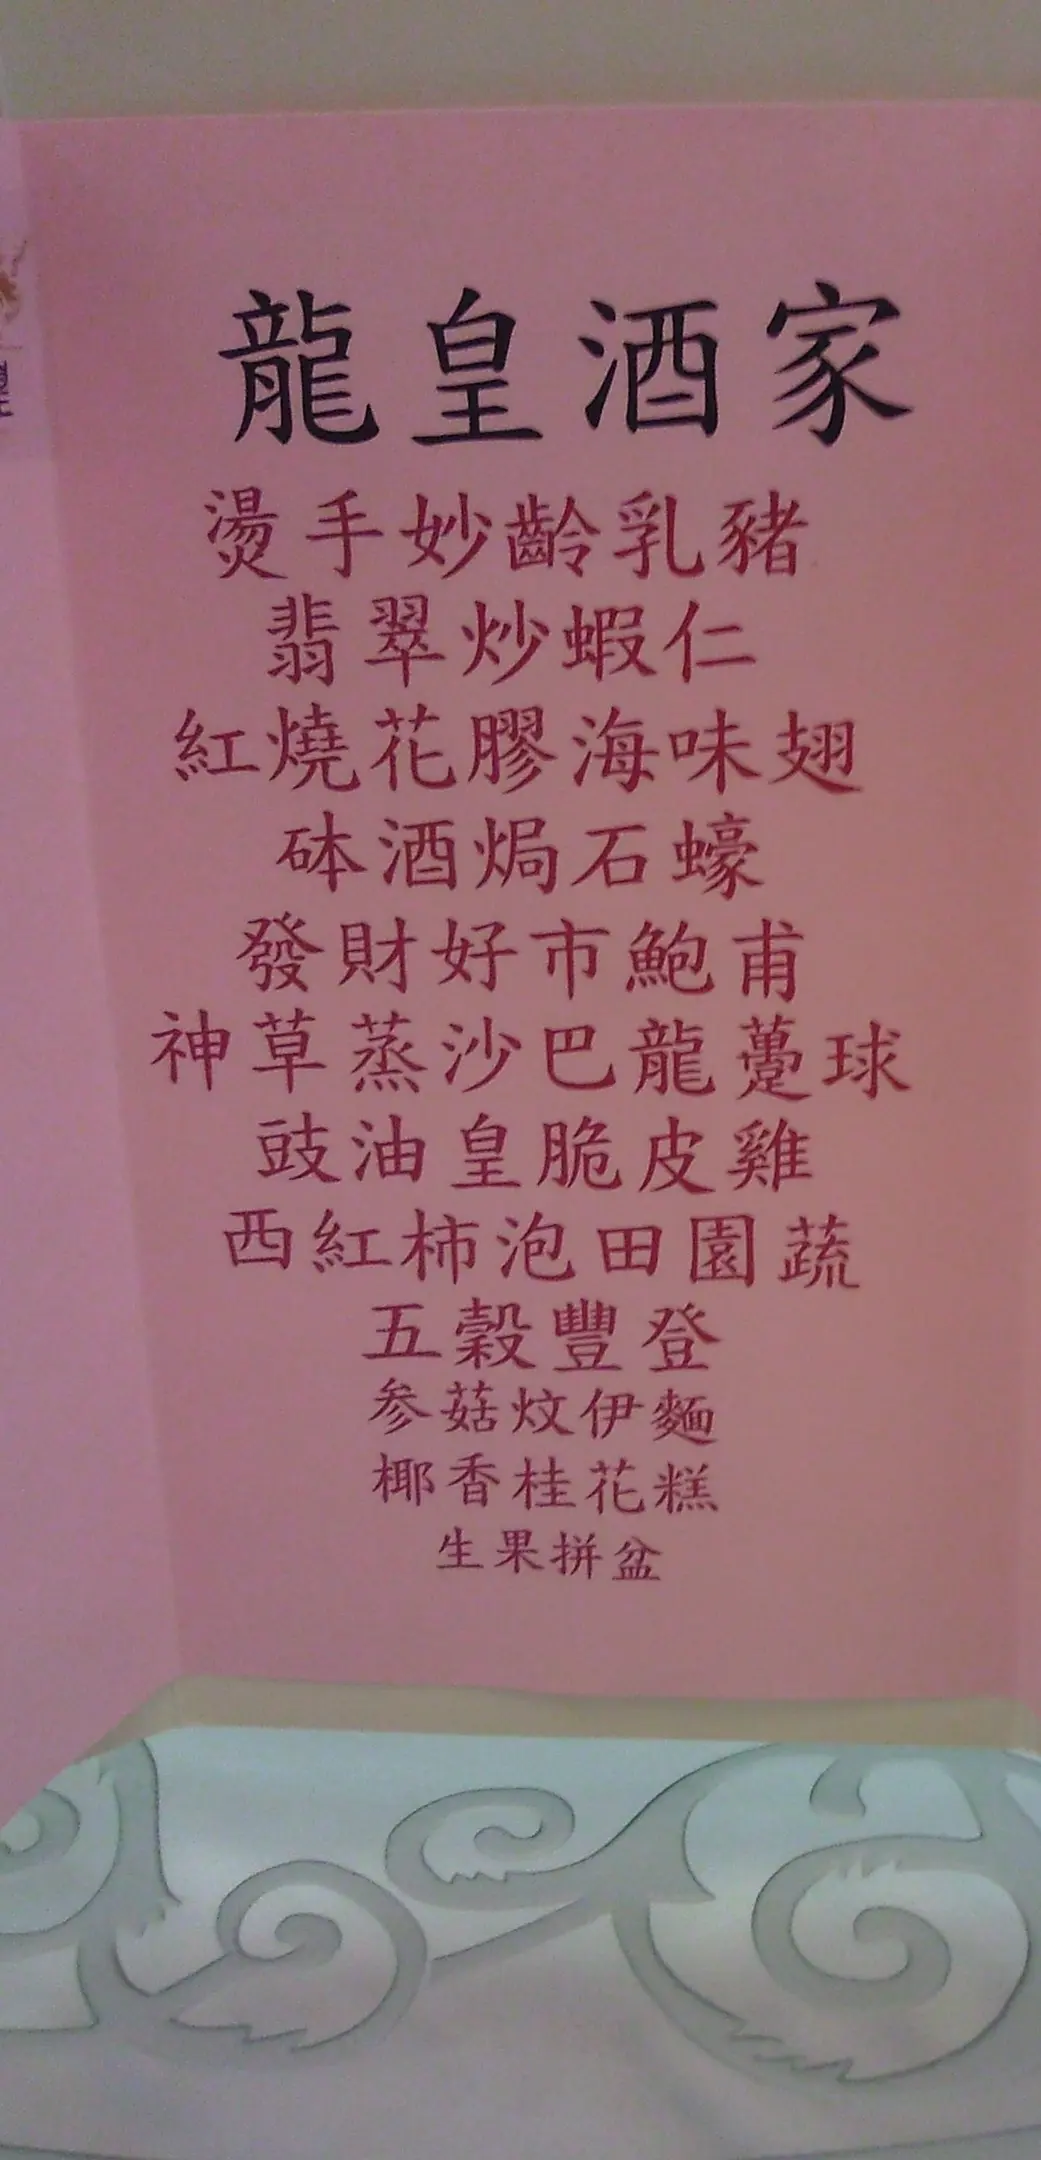 龍皇酒家
燙手妙齡乳豬
翡翠炒蝦仁
紅燒花膠海味翅
砵酒焗石蠔
發財好市鮑甫
神草蒸沙巴龍躉球
豉油皇脆皮雞
西紅柿泡田園蔬
五穀豐登
参菇炆伊麵
椰香桂花糕
生果拼盆